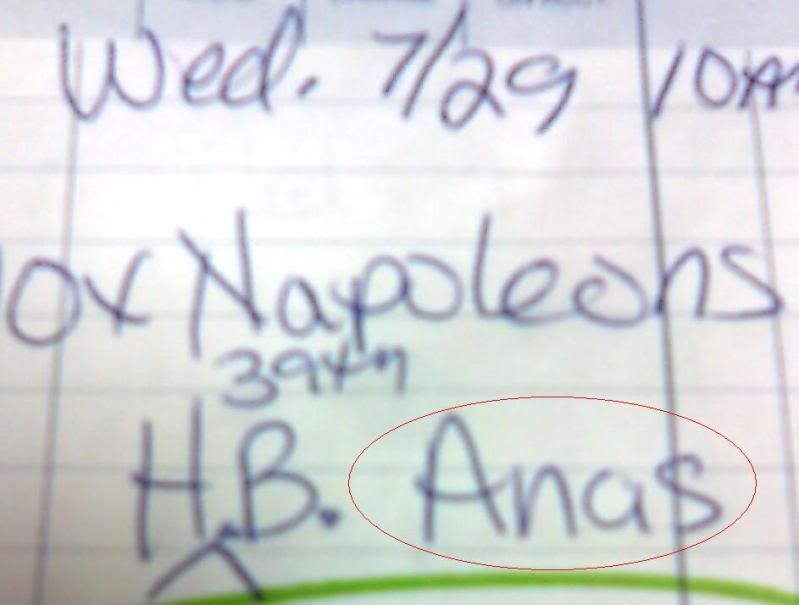 Wed. 7/29 10A
0x Napoleons
H.B. Anas